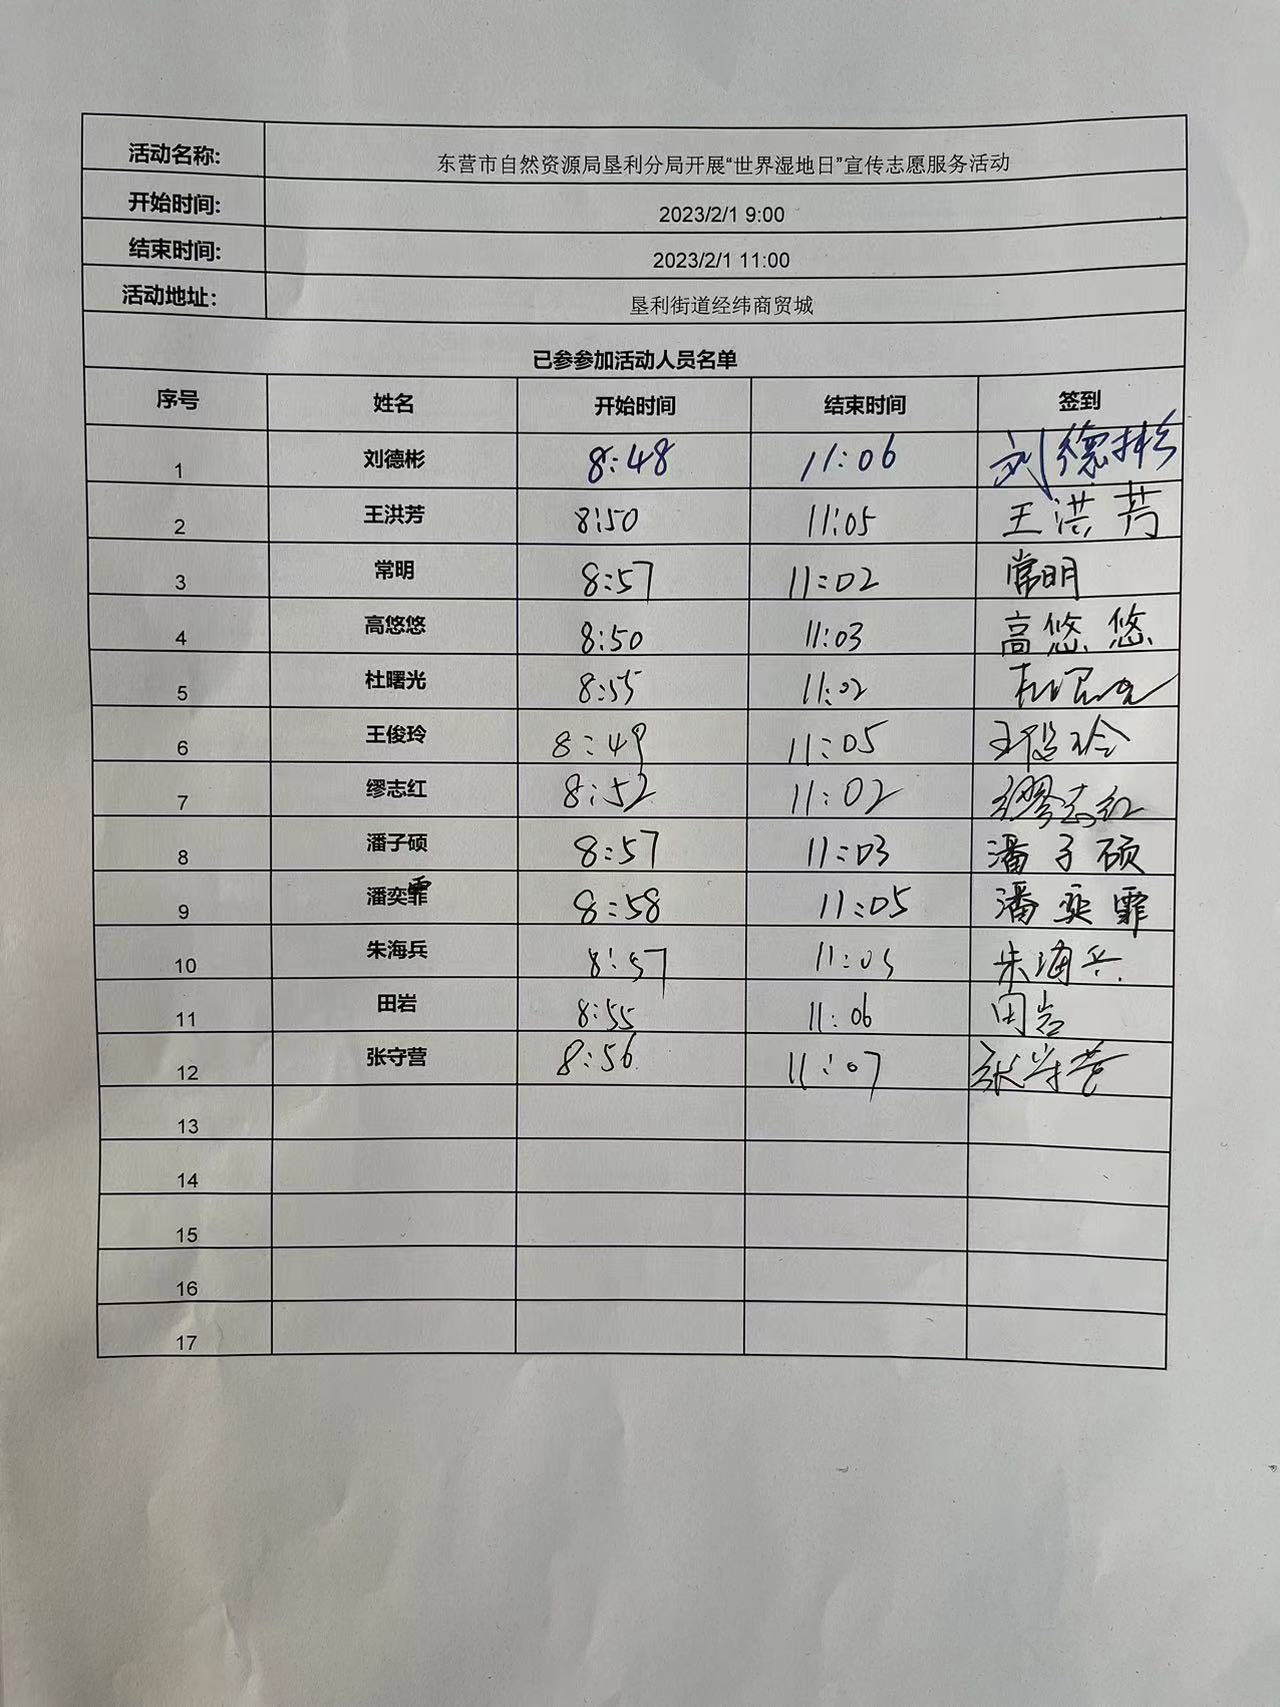 活动名称: 东营市自然资源局垦利分局开展“世界湿地日”宣传志愿服务活动
开始时间: 2023/2/1 9:00
结束时间: 2023/2/1 11:00
活动地址: 垦利街道经纬商贸城
已参参加活动人员名单
序号 姓名 开始时间 结束时间 签到
1 刘德彬 8:48 11:06 刘德彬
2 王洪芳 8:50 11:05 王洪芳
3 常明 8:57 11:02 常明
4 高悠悠 8:50 11:03 高悠悠
5 杜曙光 8:55 11:02 杜曙光
6 王俊玲 8:49 11:05 王俊玲
7 缪志红 8:52 11:02 缪志红
8 潘子硕 8:57 11:03 潘子硕
9 潘奕霏 8:58 11:05 潘奕霏
10 朱海兵 8:57 11:05 朱海兵
11 田岩 8:55 11:06 田岩
12 张守营 8:56 11:07 张守营
13
14
15
16
17